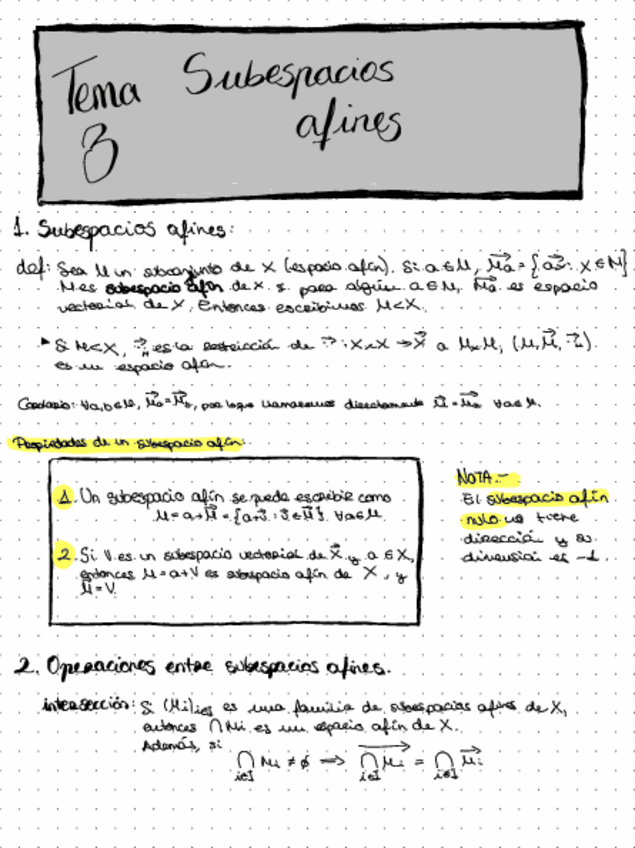 Tema 3 Subespacios
afines
1. Subespacios afines:
def: Sea M un subconjunto de X (espacio afín). Si a∈M, M⃗ₐ = {a⃗x : x∈M}
M es subespacio afín de X si para algún a∈M, M⃗ₐ es espacio
vectorial de X. Entonces escribimos M<X.
Si M<X, →ₘ es la restricción de → : X×X → X⃗ a M×M, (M, M⃗, →ₘ)
es un espacio afín.
Corolario: ∀a,b∈M, M⃗ₐ=M⃗_b, por lo que llamaremos directamente M⃗=M⃗ₐ ∀a∈M.
Propiedades de un subespacio afín:
1. Un subespacio afín se puede escribir como
M=a+M⃗={a+ : ∈M⃗} ∀a∈M
2. Si V es un subespacio vectorial de X⃗ y a∈X,
entonces M=a+V es subespacio afín de X, y
M⃗=V.
NOTA.-
El subespacio afín
nulo no tiene
dirección y su
dimensión es -1.
2. Operaciones entre subespacios afines.
intersección: Si (Mi)i∈I es una familia de subespacios afines de X,
entonces ∩Mi es un espacio afín de X.
Además, si
⋂i∈I Mi ≠ ∅ ⟹ ⋂i∈I Mi⃗ = ⋂i∈I M⃗i